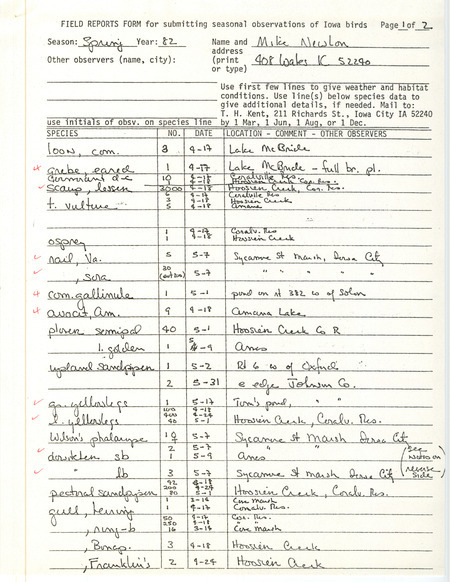 FIELD REPORTS FORM for submitting seasonal observations of Iowa birds Page 1 of 2
Season: Spring Year: 82 Name and Mike Newlon
address
Other observers (name, city): (print 408 Wales IC 52240
or type)
Use first few lines to give weather and habitat
conditions. Use line(s) below species data to
give additional details, if needed. Mail to:
T. H. Kent, 211 Richards St., Iowa City IA 52240
use initials of obsv. on species line by 1 Mar, 1 Jun, 1 Aug, or 1 Dec.
SPECIES NO. DATE LOCATION - COMMENT - OTHER OBSERVERS
loon, com. 3 4-17 Lake McBride
grebe, eared 1 4-17 Lake McBride - full br. pl.
Cormorant d-c 10 4-17 Coralville Res.
4-18 Hoosier Creek, Cor. Res.
scaup, lesser 2000 4-18 Hoosier Creek, Cor. Res.
t. vulture 4-17 Coralville Res
3 4-18 Hoosier Creek
5 4-18 Amana
osprey 1 4-17 Coralv. Res
1 4-18 Hoosier Creek
rail, Va. 5 5-7 Sycamore St Marsh, Iowa City
, sora 30 5-7 " "
com. gallinule 1 5-1 pond on rt 382 w of Solon
avocet, Am. 9 4-18 Amana Lake
plover semipal 40 5-1 Hoosier Creek Co R
l. golden 1 5-9 Ames
upland sandpiper 1 5-2 Rt 6 w of Oxford
2 5-31 e edge Johnson Co.
gr. yellowlegs 1 5-17 Tim's pond, "
l. yellowlegs 100 4-18
400 4-24 Hoosier Creek, Coralv. Res.
40 5-1
Wilson's phalarope 10 5-7 Sycamore St Marsh Iowa City
2 5-7 " "
dowitcher sb 1 5-9 Ames (see notes on
reverse side)
" lb 3 5-7 Sycamore St marsh Iowa City
pectoral sandpiper 42 4-18
200 4-24 Hoosier Creek, Coralv. Res.
80 5-1
gull, herring 1 3-14 Cone Marsh
1 4-17 Coralv. Res.
, ring-b 50 4-17 Cor. Res.
250 4-18 " "
16 3-14 Cone Marsh
, Bonap. 3 4-18 Hoosier Creek
, Franklin's 2 4-24 Hoosier Creek